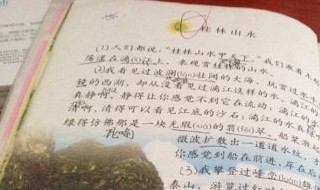 桂林山水
(1)人们都说:"桂林山水甲天下。"我们乘着木船
荡漾在漓江上,来观赏桂林的山水。
(2)我看见过波澜壮阔的大海,玩赏过水平
镜的西湖,却从没看见过漓江这样的水。漓江的
真静啊,静得让你感觉不到它在流动;漓江的水
清啊,清得可以看见江底的沙石;漓江的水真绿
绿得仿佛那是一块无瑕的翡翠。船桨激起
微波扩散出一道道水纹,才
你感觉到船在前进,岸在后
(3)我攀登过峰峦
泰山,游览过